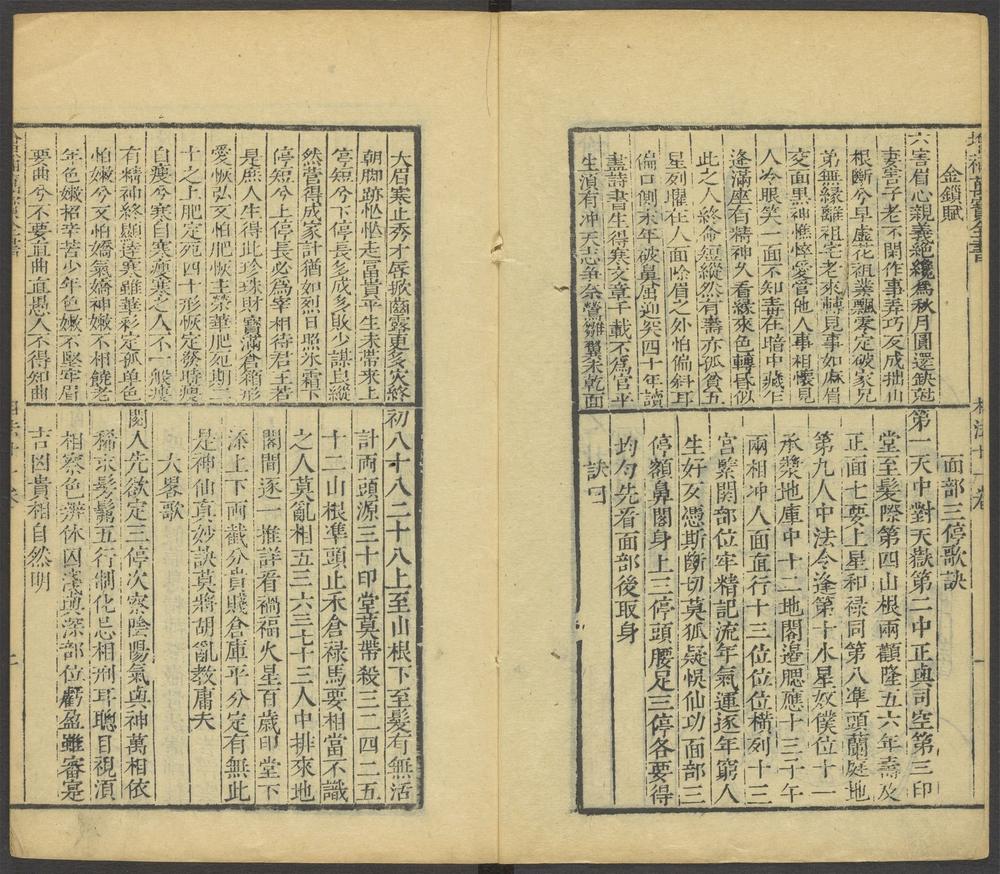 增補萬寶全書
相法十一卷
金鎖賦
六害眉心親義絕纔為秋月圓還缺尅
妻害子老不閑作事弄巧反成拙山
根斷兮早虛花祖業飄零定破家兄
弟無緣離祖宅老來轉見事如麻眉
交面黑神憔悴愛管他人事相懷見
人冷眼笑一面不知毒在暗中藏乍
逢滿座有精神久看縁來色轉昏似
此之人終命短縱然有壽亦孤貧五
星列曜在人面除眉之外怕偏斜耳
偏口側末年破鼻屈迍邅四十年讀
盡詩書生得寒文章千載不為官平
生湏有冲天志爭奈鶯雛翼未乾面
面部三停歌訣
第一天中對天獄第二中正與司空第三印
堂至髮際第四山根兩顴隆五六年壽及
正面七要上星和禄同第八準頭蘭庭地
第九人中法令逢第十水星奴僕位十一
承漿地庫中十二地閣邊腮應十三子午
兩相冲人面直行十三位位位橫列十三
宮緊關部位牢精記流年氣運逐年窮人
生好歹憑斯斷切莫狐疑悞仙功面部三
停額鼻閣身上三停頭腰足三停各要得
均勻先看面部後取身
訣曰
大眉寒止秀才唇掀齒露更多災終
朝脚跡忙忙走富貴平生未帶來上
停短兮下停長多成多敗少謀良縱
然營得成家計猶如烈日照氷霜下
停短兮上停長必為宰相待君王若
是庶人生得此珍珠財寶滿倉箱形
愛恢弘又怕肥恢主榮華肥死期二
十之上肥定死四十形恢定發時瘦
自瘦兮寒自寒瘦寒之人不一般瘦
有精神終顯達寒雖華彩定孤單色
怕嫩兮又怕嬌氣嬌神嫩不相饒老
年色嫩招辛苦少年色嫩不堅牢眉
要曲兮不要直曲直愚人不得知曲
初八十八二十八上至山根下至髮有無活
計両頭源三十印堂莫帶殺三二四二五
十二山根準頭止禾倉禄馬要相當不識
之人莫亂相五三六三七十三人中排來地
閣間逐一推詳看禍福火星百歲印堂下
添上下両截分貴賤倉庫平分定有無此
是神仙真妙訣莫將胡亂教庸夫
大畧歌
閱人先欲定三停次察陰陽氣與神萬相依
稀求髮鬚五行制化忌相刑耳聰目視湏
相察色辨休囚造與深部位虧盈雖審寔
吉凶貴相自然明